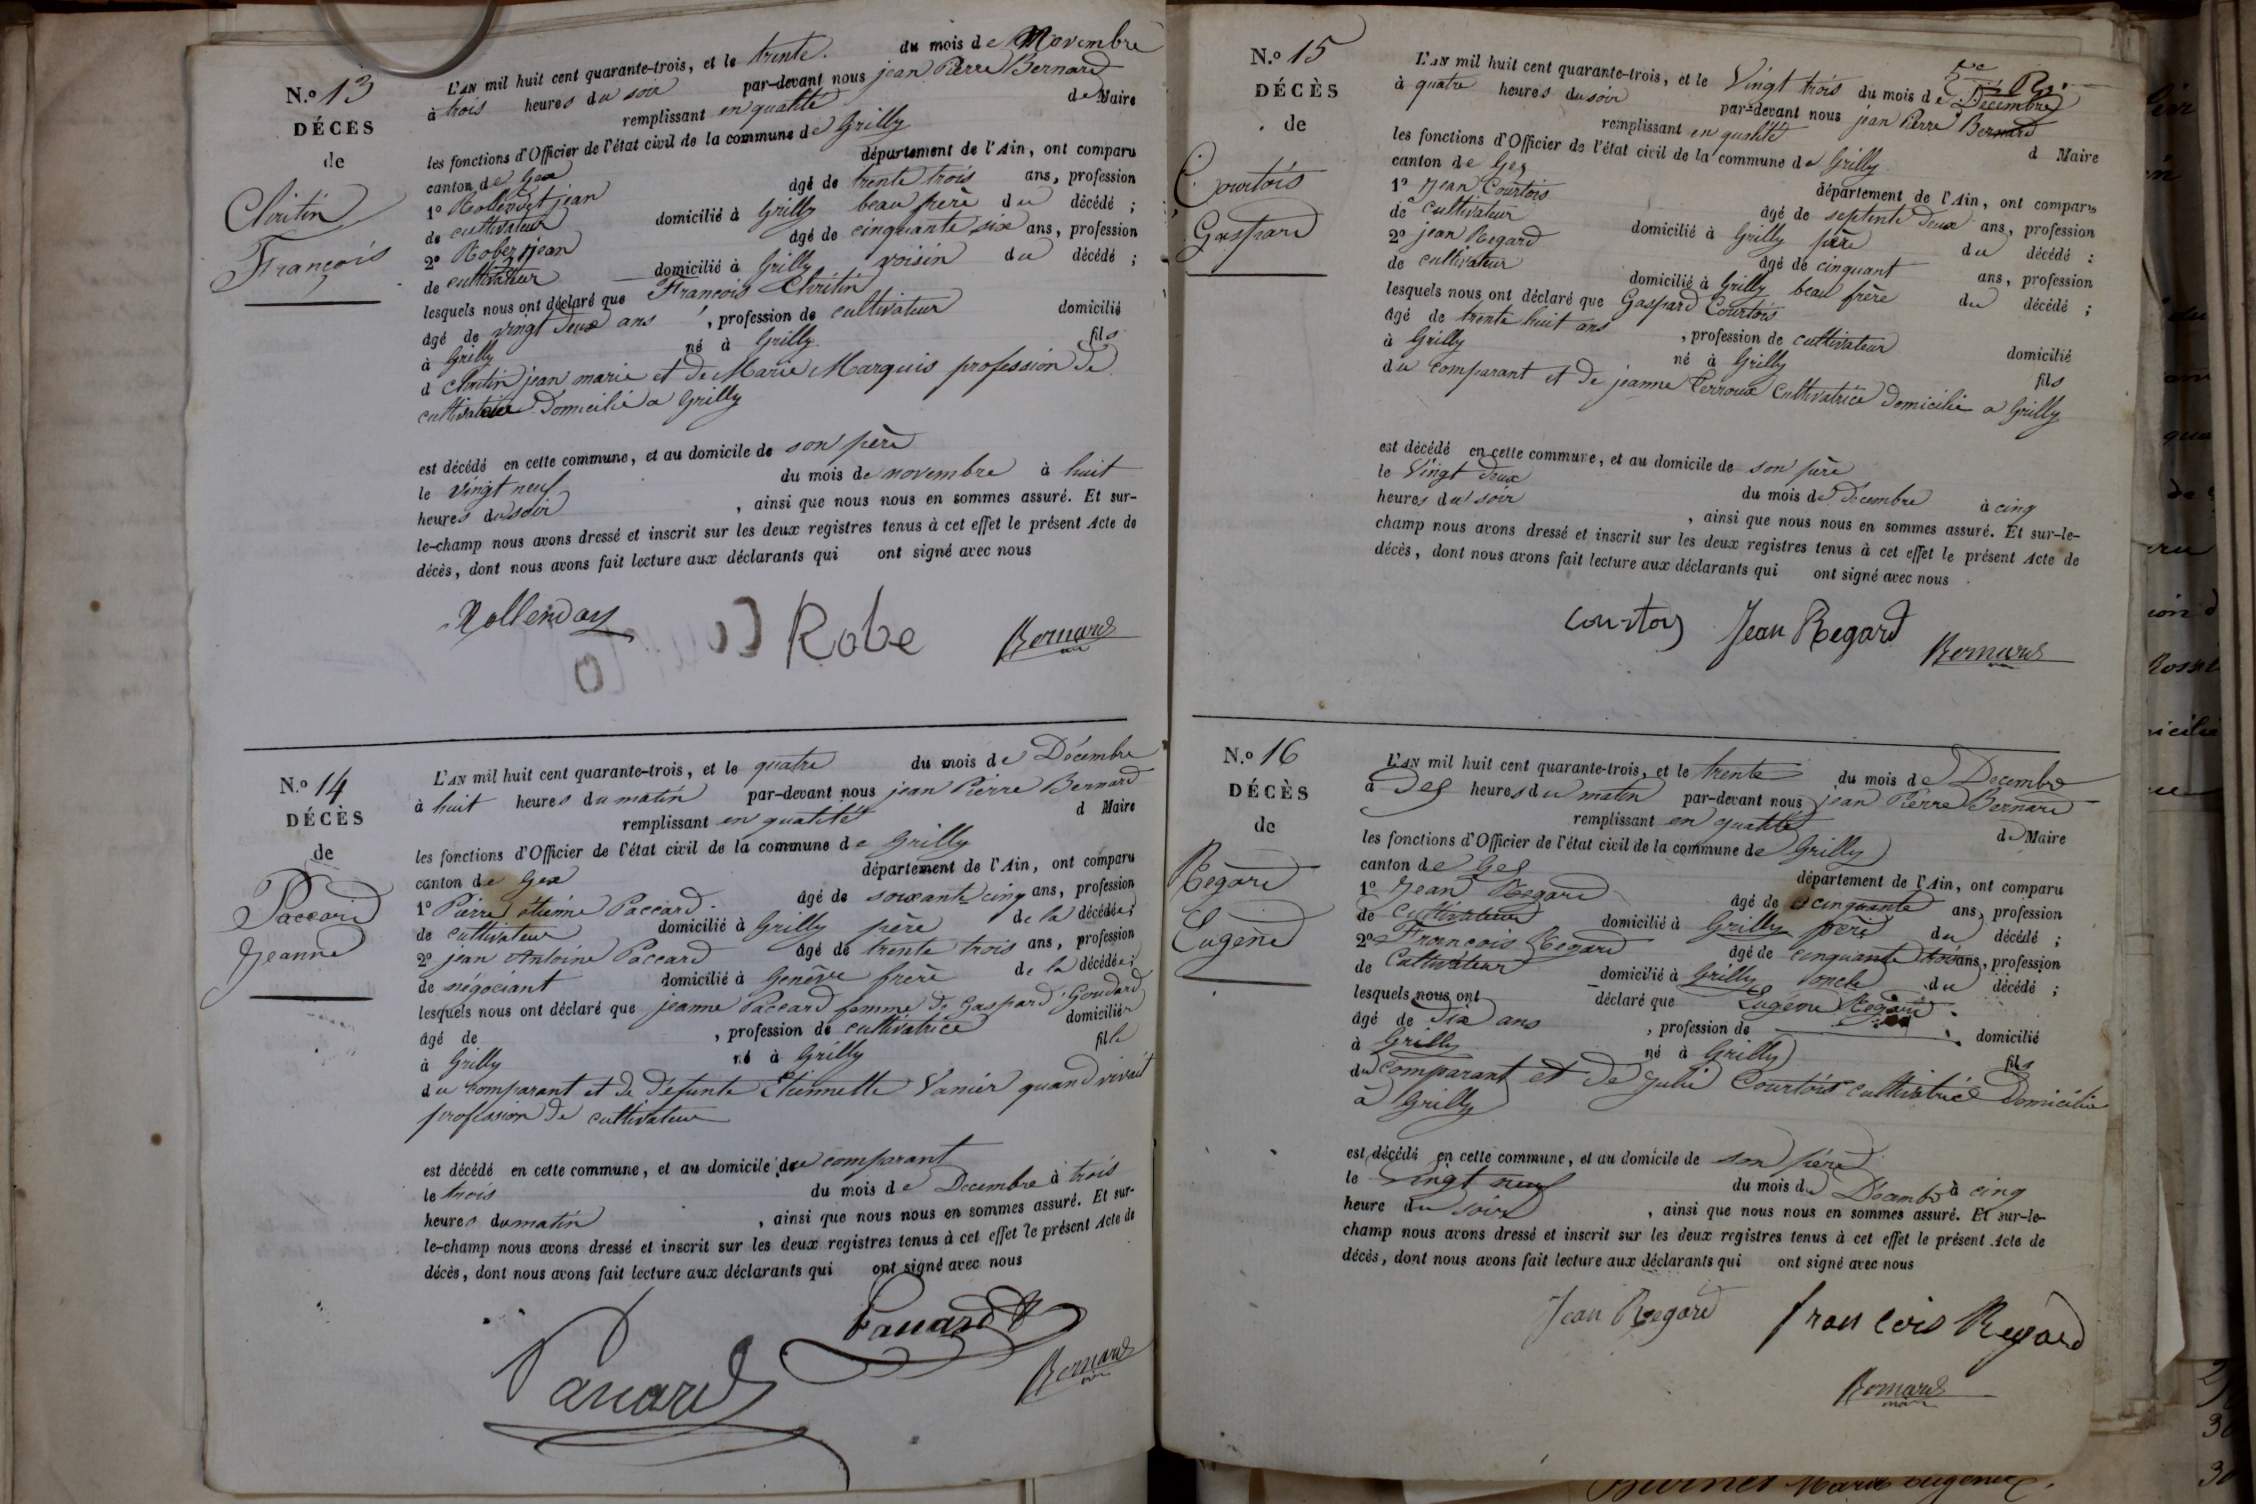 N.o 13
DÉCÈS
de
Clritin
François
L'AN mil huit cent quarante-trois, et le trente. du mois de Novembre
à trois heures du soir par-devant nous jean Pierre Bernard
remplissant en qualité de Maire
les fonctions d'Officier de l'état civil de la commune de Grilly
canton de Gex département de l'Ain, ont comparu
1o jean âgé de trente trois ans, profession
de cultivateur domicilié à Grilly beau frère du décédé ;
2o Robez jean âgé de cinquante six ans, profession
de cultivateur domicilié à Grilly voisin du décédé ;
lesquels nous ont déclaré que François Clritin
âgé de vingt deux ans , profession de cultivateur domicilié
à Grilly né à Grilly fils
d Clritin jean marie et de Marie Marquis profession de
cultivateur Domicilié a Grilly
est décédé en cette commune, et au domicile de son père
le vingt neuf du mois de novembre à huit
heures du soir , ainsi que nous nous en sommes assuré. Et sur-
le-champ nous avons dressé et inscrit sur les deux registres tenus à cet effet le présent Acte de
décès, dont nous avons fait lecture aux déclarants qui ont signé avec nous
Robe Bernard
N.o 14
DÉCÈS
de
Paccard
Jeanne
L'AN mil huit cent quarante-trois, et le quatre du mois de Décembre
à huit heures du matin par-devant nous jean Pierre Bernard
remplissant en qualité d Maire
les fonctions d'Officier de l'état civil de la commune de Grilly
canton de Gex département de l'Ain, ont comparu
1o Pierre étienne Paccard. âgé de soixante cinq ans, profession
de cultivateur domicilié à Grilly père de la décédée;
2o jean Antoine Paccard âgé de trente trois ans, profession
de négociant domicilié à Genève frère de la décédée;
lesquels nous ont déclaré que jeanne Paccard femme de Gaspard Goudard
âgé de , profession de cultivatrice domiciliée
à Grilly né à Grilly fille
du comparant et de défunte Etiennette Vanier quand vivait
profession de cultivateur
est décédé en cette commune, et au domicile du comparant
le trois du mois de Decembre à trois
heures du matin , ainsi que nous nous en sommes assuré. Et sur-
le-champ nous avons dressé et inscrit sur les deux registres tenus à cet effet le présent Acte de
décès, dont nous avons fait lecture aux déclarants qui ont signé avec nous
Paccard
Paccard Bernard
N.o 15
DÉCÈS
de
Courtois
Gaspard
L'AN mil huit cent quarante-trois, et le Vingt trois du mois de Décembre
à quatre heures du soir par-devant nous jean Pierre Bernard
remplissant en qualité d Maire
les fonctions d'Officier de l'état civil de la commune de Grilly
canton de Gex département de l'Ain, ont comparu
1o Jean Courtois âgé de septente deux ans, profession
de cultivateur domicilié à Grilly père du décédé ;
2o jean Regard âgé de cinquant ans, profession
de cultivateur domicilié à Grilly beau frère du décédé ;
lesquels nous ont déclaré que Gaspard Courtois
âgé de trente huit ans , profession de cultivateur domicilié
à Grilly né à Grilly fils
du comparant et de jeanne Terroux Cultivatrice domicilie a Grilly
est décédé en cette commune, et au domicile de son père
le Vingt deux du mois de Decembre à cinq
heures du soir , ainsi que nous nous en sommes assuré. Et sur-le-
champ nous avons dressé et inscrit sur les deux registres tenus à cet effet le présent Acte de
décès, dont nous avons fait lecture aux déclarants qui ont signé avec nous
Courtois Jean Regard Bernard
N.o 16
DÉCÈS
de
Regard
Eugène
L'AN mil huit cent quarante-trois, et le trente du mois de Decembre
à des heures du matin par-devant nous jean Pierre Bernard
remplissant en qualité de Maire
les fonctions d'Officier de l'état civil de la commune de Grilly
canton de Gex département de l'Ain, ont comparu
1o Jean Regard âgé de cinquante ans, profession
de Cultivateur domicilié à Grilly père du décédé ;
2o François Regard âgé de cinquante trois ans, profession
de Cultivateur domicilié à Grilly oncle du décédé ;
lesquels nous ont déclaré que Eugène Regard
âgé de dix ans , profession de domicilié
à Grilly né à Grilly fils
du comparant et de Julie Courtois cultivatrice Domicilie
à Grilly
est décédé en cette commune, et au domicile de son père
le Vingt neuf du mois de Décembre à cinq
heure du soir , ainsi que nous nous en sommes assuré. Et sur-le-
champ nous avons dressé et inscrit sur les deux registres tenus à cet effet le présent Acte de
décès, dont nous avons fait lecture aux déclarants qui ont signé avec nous
Jean Regard francois Regard
Bernard
maire